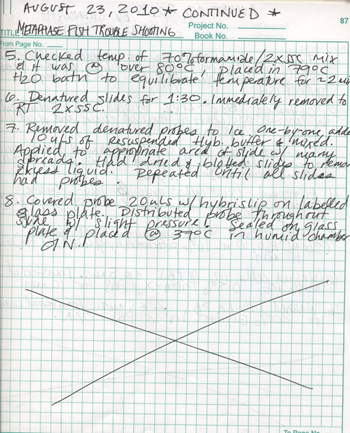 * AUGUST 23, 2010 * CONTINUED *
87
TITLE METAPHASE FISH TROUBLE SHOOTING
Project No.
Book No.
From Page No.
5. Checked temp. of 70% formamide/2xSSC mix
& it was @ over 80°C, placed in 79°C
H2O bath to equilibrate temperature for ~2
6. Denatured slides for 1:30. Immediately removed to
RT 2xSSC.
7. Removed denatured probes to ice. One-by-one, added
10 uls of resuspended Hyb. buffer & mixed.
Applied to appropriate area of slide w/ many
spreads. Had dried & blotted slides to remove
excess liquid. Repeated until all slides
had probes.
8. Covered probe 20uls w/ hybrislip on labelled
glass plate. Distributed probe throughout
w/ slight pressure. Sealed on glass
plate & placed @ 37°C in humid chamber
O/N.
To Page No.